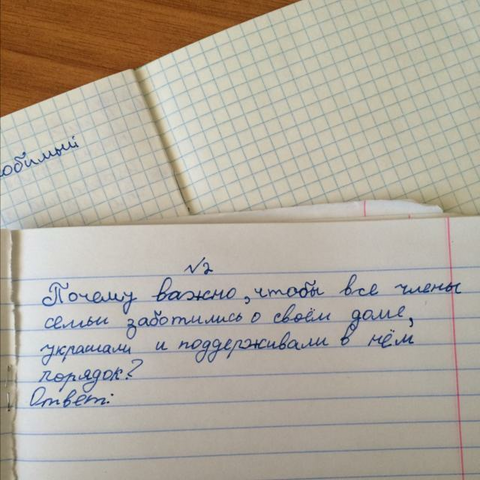 юбимый
№2
Почему важно, чтобы все члены
семьи заботились о своём доме,
украшали и поддерживали в нём
порядок?
Ответ: